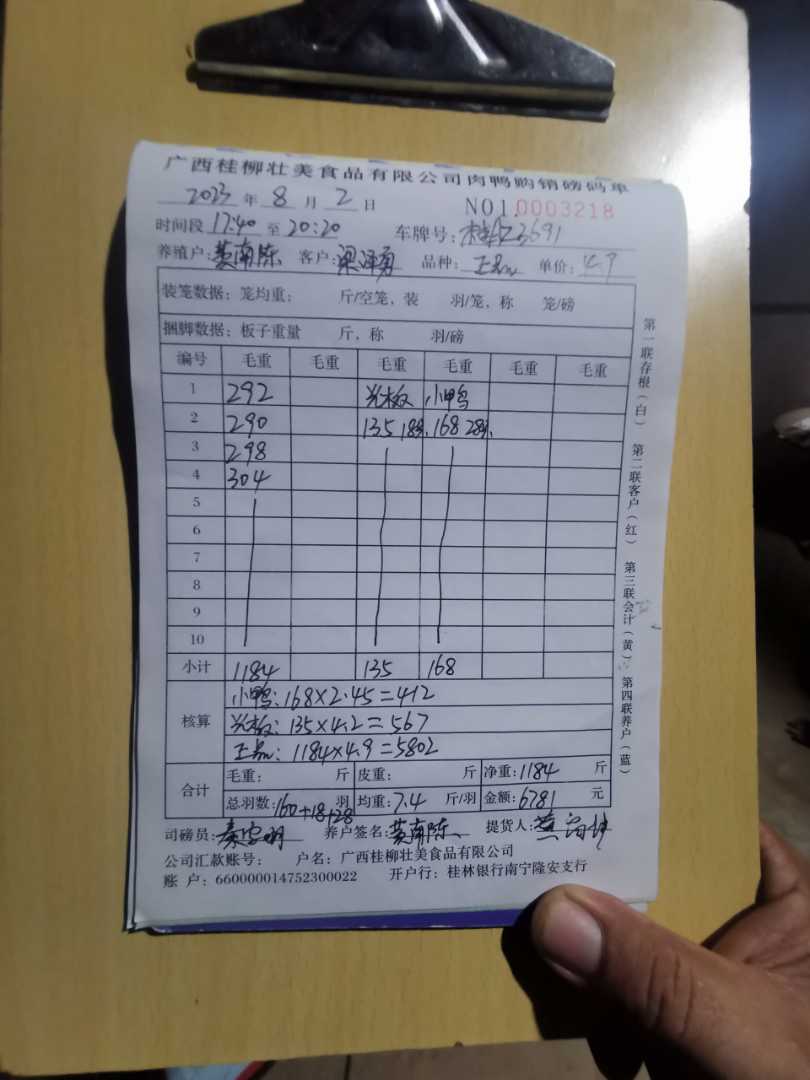 广西桂柳壮美食品有限公司肉鸭购销磅码单
2023 年 8 月 2 日 NO1 0003218
时间段 17:40 至 20:20 车牌号: 3691
养殖户: 黄南陈 客户: 梁泽勇 品种: 正品 单价: 4.9
装笼数据: 笼均重: 斤/空笼、装 羽/笼、称 笼/磅
捆脚数据: 板子重量 斤, 称 羽/磅
编号 毛重 毛重 毛重 毛重 毛重 毛重
1 292 光板 小鸭
2 290 135 18只 168 28只
3 298
4 304
5
6
7
8
9
10
小计 1184 135 168
核算 小鸭: 168×2.45=412
光板: 135×4.2=567
正品: 1184×4.9=5802
合计 毛重: 斤 皮重: 斤 净重: 1184 斤
总羽数: 160+18+28 羽 均重: 7.4 斤/羽 金额: 6781 元
司磅员: 养户签名: 黄南陈 提货人:
公司汇款账号: 户名: 广西桂柳壮美食品有限公司
账 户: 660000014752300022 开户行: 桂林银行南宁隆安支行
第一联存根(白) 第二联客户(红) 第三联会计(黄) 第四联养户(蓝)